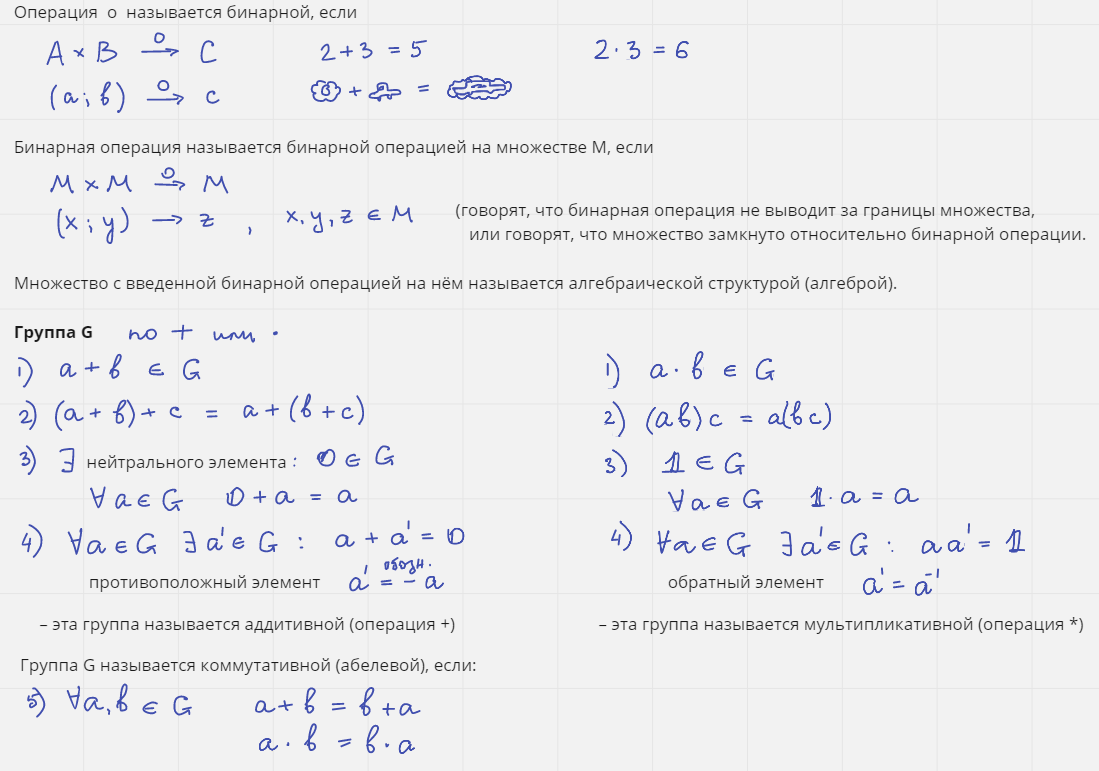 Операция о называется бинарной, если
A × B —o→ C 2 + 3 = 5 2 · 3 = 6
(a; b) —o→ c + =
Бинарная операция называется бинарной операцией на множестве М, если
M × M —o→ M
(x; y) → z , x, y, z ∈ M (говорят, что бинарная операция не выводит за границы множества,
или говорят, что множество замкнуто относительно бинарной операции.
Множество с введенной бинарной операцией на нём называется алгебраической структурой (алгеброй).
Группа G по + или ·
1) a + b ∈ G 1) a · b ∈ G
2) (a + b) + c = a + (b + c) 2) (ab)c = a(bc)
3) ∃ нейтрального элемента : 0 ∈ G 3) 1 ∈ G
∀a ∈ G 0 + a = a ∀a ∈ G 1 · a = a
4) ∀a ∈ G ∃ a' ∈ G : a + a' = 0 4) ∀a ∈ G ∃a' ∈ G : aa' = 1
противоположный элемент a' =обозн. -a обратный элемент a' = a⁻¹
– эта группа называется аддитивной (операция +) – эта группа называется мультипликативной (операция *)
Группа G называется коммутативной (абелевой), если:
5) ∀a, b ∈ G a + b = b + a
a · b = b · a